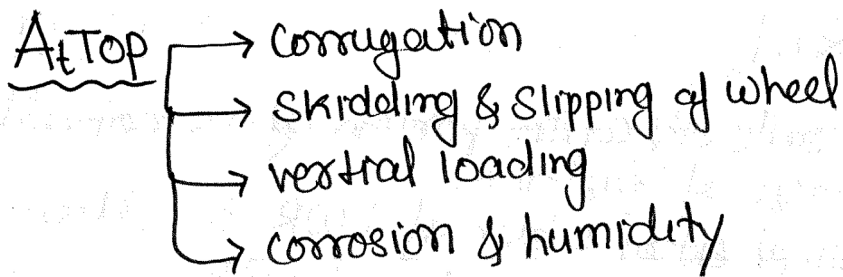 At TOP
Corrugation
Skidding & Slipping of wheel
vertial loading
corrosion & humidity